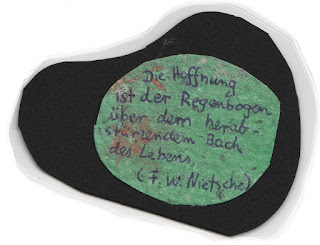 Die Hoffnung
ist der Regenbogen
über dem herab-
stürzendem Bach
des Lebens
(F. W. Nietsche)